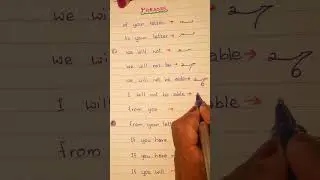 PHRASES
of your letter →
to your letter →
we will not →
we will not be →
we will not be able →
I will not be able →
from you →
from your lett
If you have
If you have
If you will →